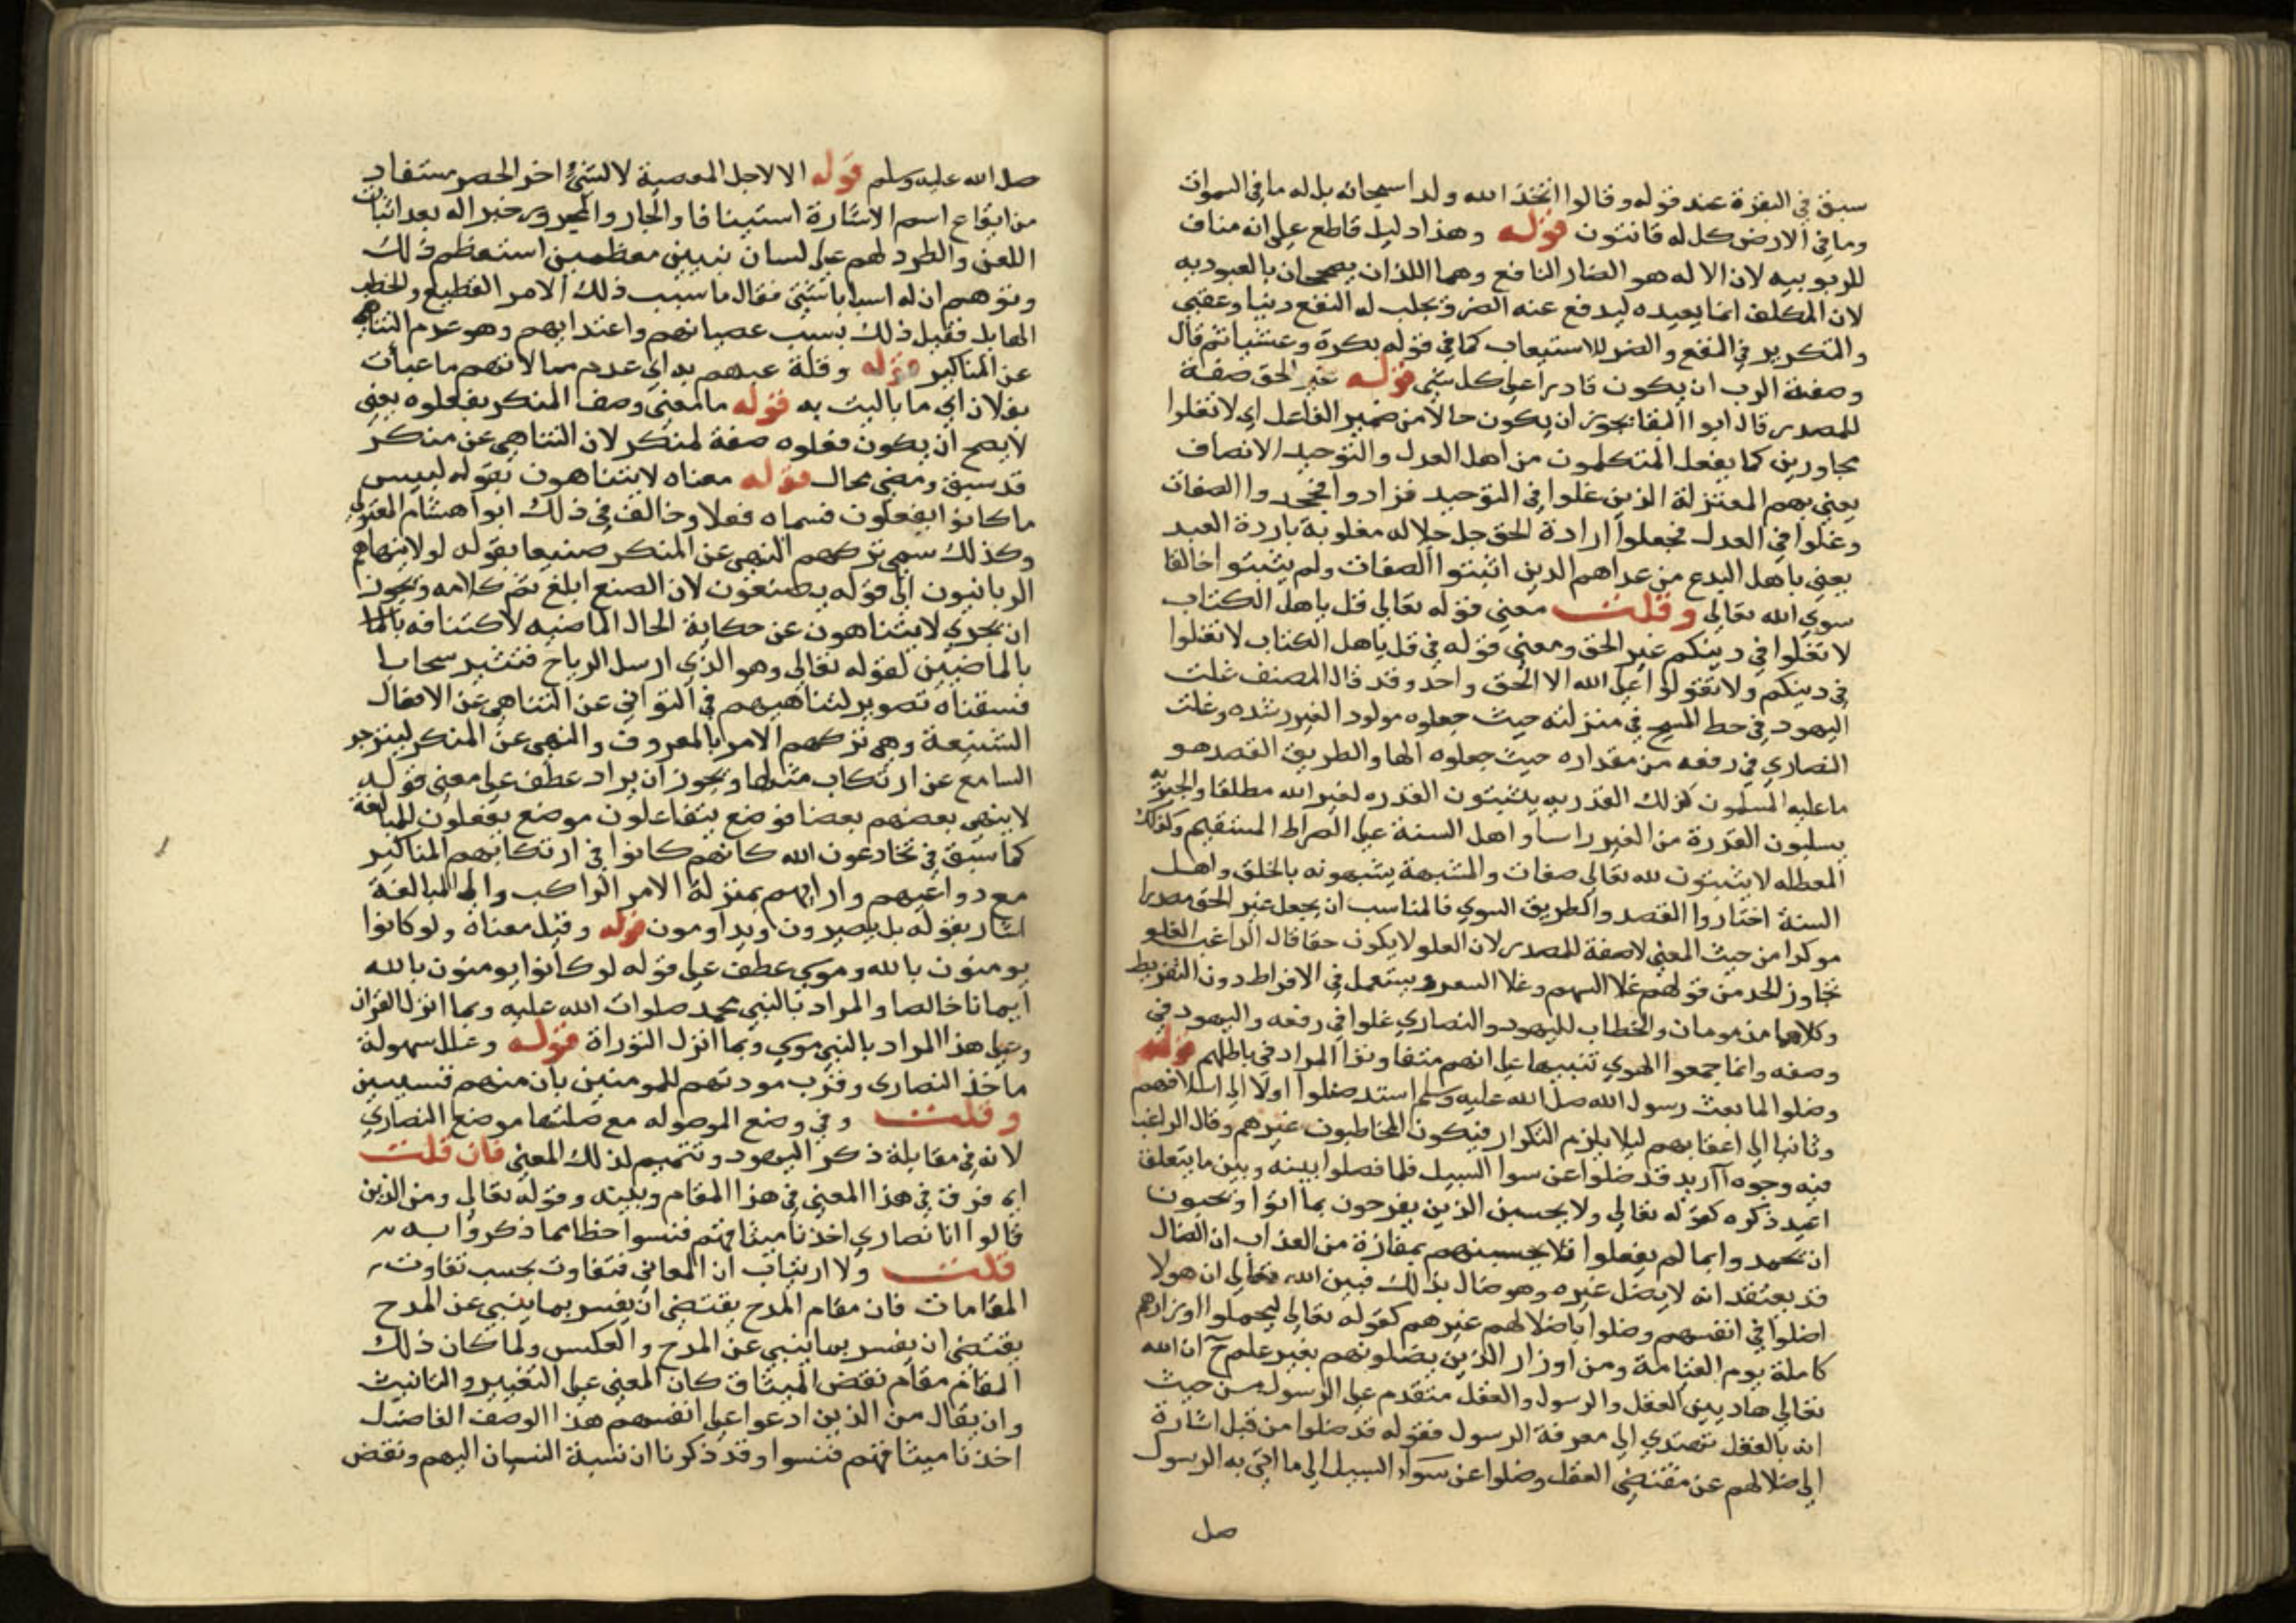 سبق في البقرة عند قوله وقالوا اتخذ الله ولدا سبحانه بل له ما في السموات
وما في الارض كل له قانتون قوله وهذا دليل قاطع على انه مناف
للربوبيه لان الاله هو الضار النافع وهما اللذان يصححان بالعبوديه
لان المكلف انما يعبده ليدفع عنه الضر ويجلب له النفع دنيا وعقبى
والتكرير في النفع والضر للاستيعاب كما في قوله بكرة وعشيا ثم قال
وصفة الرب ان يكون قادرا على كل شي قوله غير الحق صفة
للمصدر قال ابوا البقا يجوز ان يكون حالا من ضمير الفاعل اي لا تغلوا
مجاوزين كما يفعل المتكلمون من اهل العدل والتوحيد الانصاف
يعني بهم المعتزلة الذين غلوا في التوحيد فزادوا فجحدوا الصفات
وغلوا في العدل فجعلوا ارادة الحق جل جلاله مغلوبة باردة العبد
يعني باهل البدع من عداهم الذين اثبتوا الصفات ولم يثبتوا خالقا
سوي الله تعالي وقلت معني قوله تعالي قل ياهل الكتاب
لا تغلوا في دينكم غير الحق ومعني قوله في قل ياهل الكتاب لا تغلوا
في دينكم ولا تقولوا على الله الا الحق واحد وقد قال المصنف غلت
اليهود في حط المسيح في منزلته حيث جعلوه مولود الغير رشده وغلت
النصاري في رفعه من مقداره حيث جعلوه الها والطريق القصد هو
ما عليه المسلمون كذلك القدريه يثبتون القدره لغير الله مطلقا والجبريه
يسلبون القدرة من الغير راسا واهل السنة على الصراط المستقيم وكذلك
المعطله لا يثبتون لله تعالي صفات والمشبهة يشبهونه بالخلق واهل
السنة اختاروا القصد والطريق السوي فالمناسب ان يجعل غير الحق مصدرا
موكدا من حيث المعني لا صفة للمصدر لان الغلو لا يكون حقا قال الراغب الغلو
تجاوز الحد من قولهم غلا السهم وغلا السعر ويستعمل في الافراط دون التفريط
وكلاهما مذمومان والخطاب لليهود والنصاري غلوا في رفعه واليهود في
وصفه وانما جمعوا الهوي تنبيها على انهم متفاوتوا المراد في باطلهم قوله
وضلوا لما بعث رسول الله صل الله عليه وسلم استد ضلوا اولا الي اسلافهم
وثانيا الي اعقابهم ليلا يلزم التكرار فيكون المخاطبون غيرهم وقال الراغب
فيه وجوه آ اريد قد ضلوا عن سوا السبيل فلما فصلوا بينه وبين ما يتعلق
اعيد ذكره كقوله تعالي ولا يحسبن الذين يفرحون بما اتوا ويحبون
ان يحمدوا بما لم يفعلوا فلا يحسبنهم بمفازة من العذاب ان الضال
قد يعتقد انه لا يضل غيره وهو ضال بذلك فبين الله تعالي ان هولا
اضلوا في انفسهم وضلوا باضلالهم غيرهم كقوله تعالي ليحملوا اوزارهم
كاملة يوم القيامة ومن اوزار الذين يضلونهم بغير علم ج ان الله
تعالي هاديين العقل والرسول والعقل متقدم على الرسول من حيث
انه بالعقل نهتدي الي معرفة الرسول فقوله قد ضلوا من قبل اشارة
الي ضلالهم عن مقتضي العقل وضلوا عن سواء السبيل الي ما اتي به الرسول
صل
صل الله عليه وسلم قوله الا لاجل المعصية لا لشئ اخر الحصر مستفاد
من ايقاع اسم الاشارة استينافا والجار والمجرور خبرا له بعد اثبات
اللعن والطرد لهم على لسان نبيين معظمين استعظم ذلك
وتوهم ان له اسبابا شتي فقال ما سبب ذلك الامر الفظيع والخطب
الهايل فقيل ذلك بسبب عصيانهم واعتدايهم وهو عدم التناهي
عن المناكير قوله وقلة عبيهم به اي عدم مبالاتهم ما عبات
بفلان اي ما باليت به قوله ما معني وصف المنكر بفعلوه يعني
لا يصح ان يكون فعلوه صفة لمنكر لان التناهي عن منكر
قد سبق ومضي محال قوله معناه لا يتناهون بقوله لبيس
ما كانوا يفعلون فسماه فعلا وخالف في ذلك ابوا هشام المعتزلي
وكذلك سمي تركهم النهي عن المنكر صنيعا بقوله لولا ينهاهم
الربانيون الي قوله يصنعون لان الصنع ابلغ تم كلامه ويجوز
ان يجري لا يتناهون عن حكاية الحال الماضيه لاكتنافه
بالماضيين لقوله تعالي وهو الذي ارسل الرياح فتثير سحابا
فسقناه تصوير لتناهيهم في التواني عن التناهي عن الافعال
الشنيعة وهي تركهم الامر بالمعروف والنهي عن المنكر لينزجر
السامع عن ارتكاب مثلها ويجوز ان يراد عطف على معني قوله
لا ينهي بعضهم بعضا فوضع يتفاعلون موضع يفعلون للمبالغة
كما سبق في يخادعون الله كانهم كانوا في ارتكابهم المناكير
مع دواعيهم وارايهم بمنزلة الامر الراكب والى المبالغة
اشار بقوله بل يصبرون ويداومون قوله وقيل معناه ولو كانوا
يومنون بالله وموسي عطف على قوله لو كانوا يومنون بالله
ايمانا خالصا والمراد بالنبي محمد صلوات الله عليه وبما انزل القران
وعلى هذا المراد بالنبي موسي وبما انزل التوراة قوله وعلل سهولة
ماخذ النصاري وقرب مودتهم للمومنين بان منهم قسيسين
وقلت وفي وضع الموصوله مع صلتها موضع النصاري
لانه في مقابلة ذكر اليهود وتتميم لذلك المعني فان قلت
اي فرق في هذا المعني في هذا المقام وبينه وقوله تعالي ومن الذين
قالوا انا نصاري اخذنا ميثاقهم فنسوا حظا مما ذكروا به
قلت ولا ارتياب ان المعاني فتفاوت بحسب تفاوت
المقامات فان مقام المدح يقتضي ان يفسر بما ينبي عن المدح
يقتضي ان يفسر بما ينبي عن المدح والعكس ولما كان ذلك
المقام مقام نقض الميثاق كان المعني على التغيير والتانيث
وان يقال من الذين ادعوا على انفسهم هذا الوصف الفاضل
اخذنا ميثاقهم فنسوا وقد ذكرنا ان نسبة النسيان اليهم ونقض